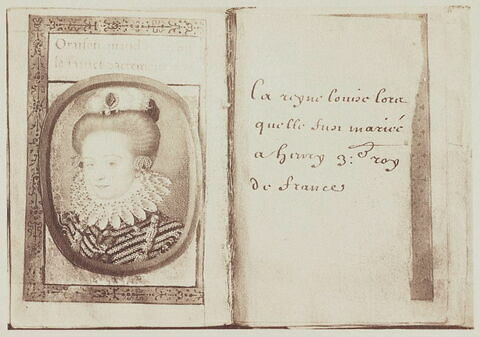 Oraison
le sainct sacrement
La reyne louise lors
quelle fust mariée
a henry 3.e roy
de france